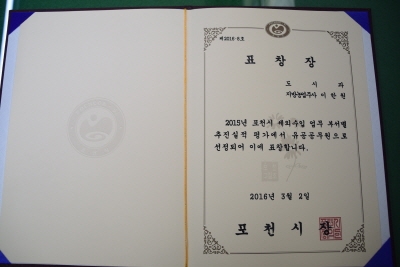 제2016-8호
표 창 장
도 시 과
지방농업주사 이 한 원
2015년 포천시 세외수입 업무 부서별
추진실적 평가에서 유공공무원으로
선정되어 이에 표창합니다.
2016년 3월 2일
포 천 시 장